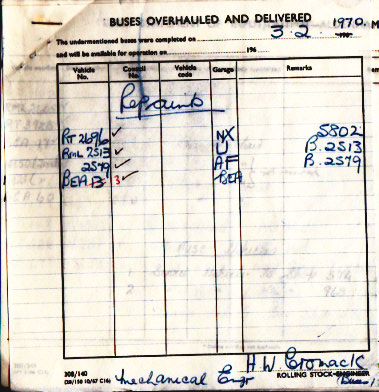 BUSES OVERHAULED AND DELIVERED
The undermentioned buses were completed on 3.2. 1970.
and will be available for operation on 196
Vehicle No. Council No. Vehicle code Garage Remarks
Repaints
RT 2696 ✓ NX 5802
RML 2513 ✓ U B.2513
2579 ✓ AF B.2579
BEA 13 3 ✓ BEA
308/140
Mechanical Engr H.W. Cromack
ROLLING STOCK ENGINEER